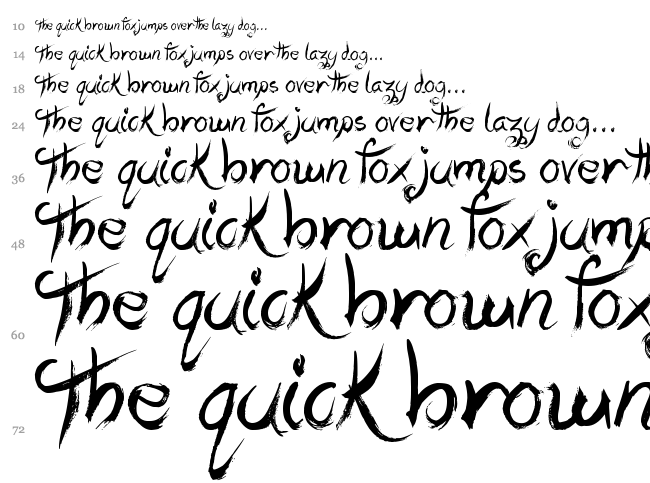 10 The quick brown fox jumps over the lazy dog...
14 The quick brown fox jumps over the lazy dog...
18 The quick brown fox jumps over the lazy dog...
24 The quick brown fox jumps over the lazy dog...
36 The quick brown fox jumps over th
48 The quick brown fox jump
60 The quick brown fox
72 The quick brown